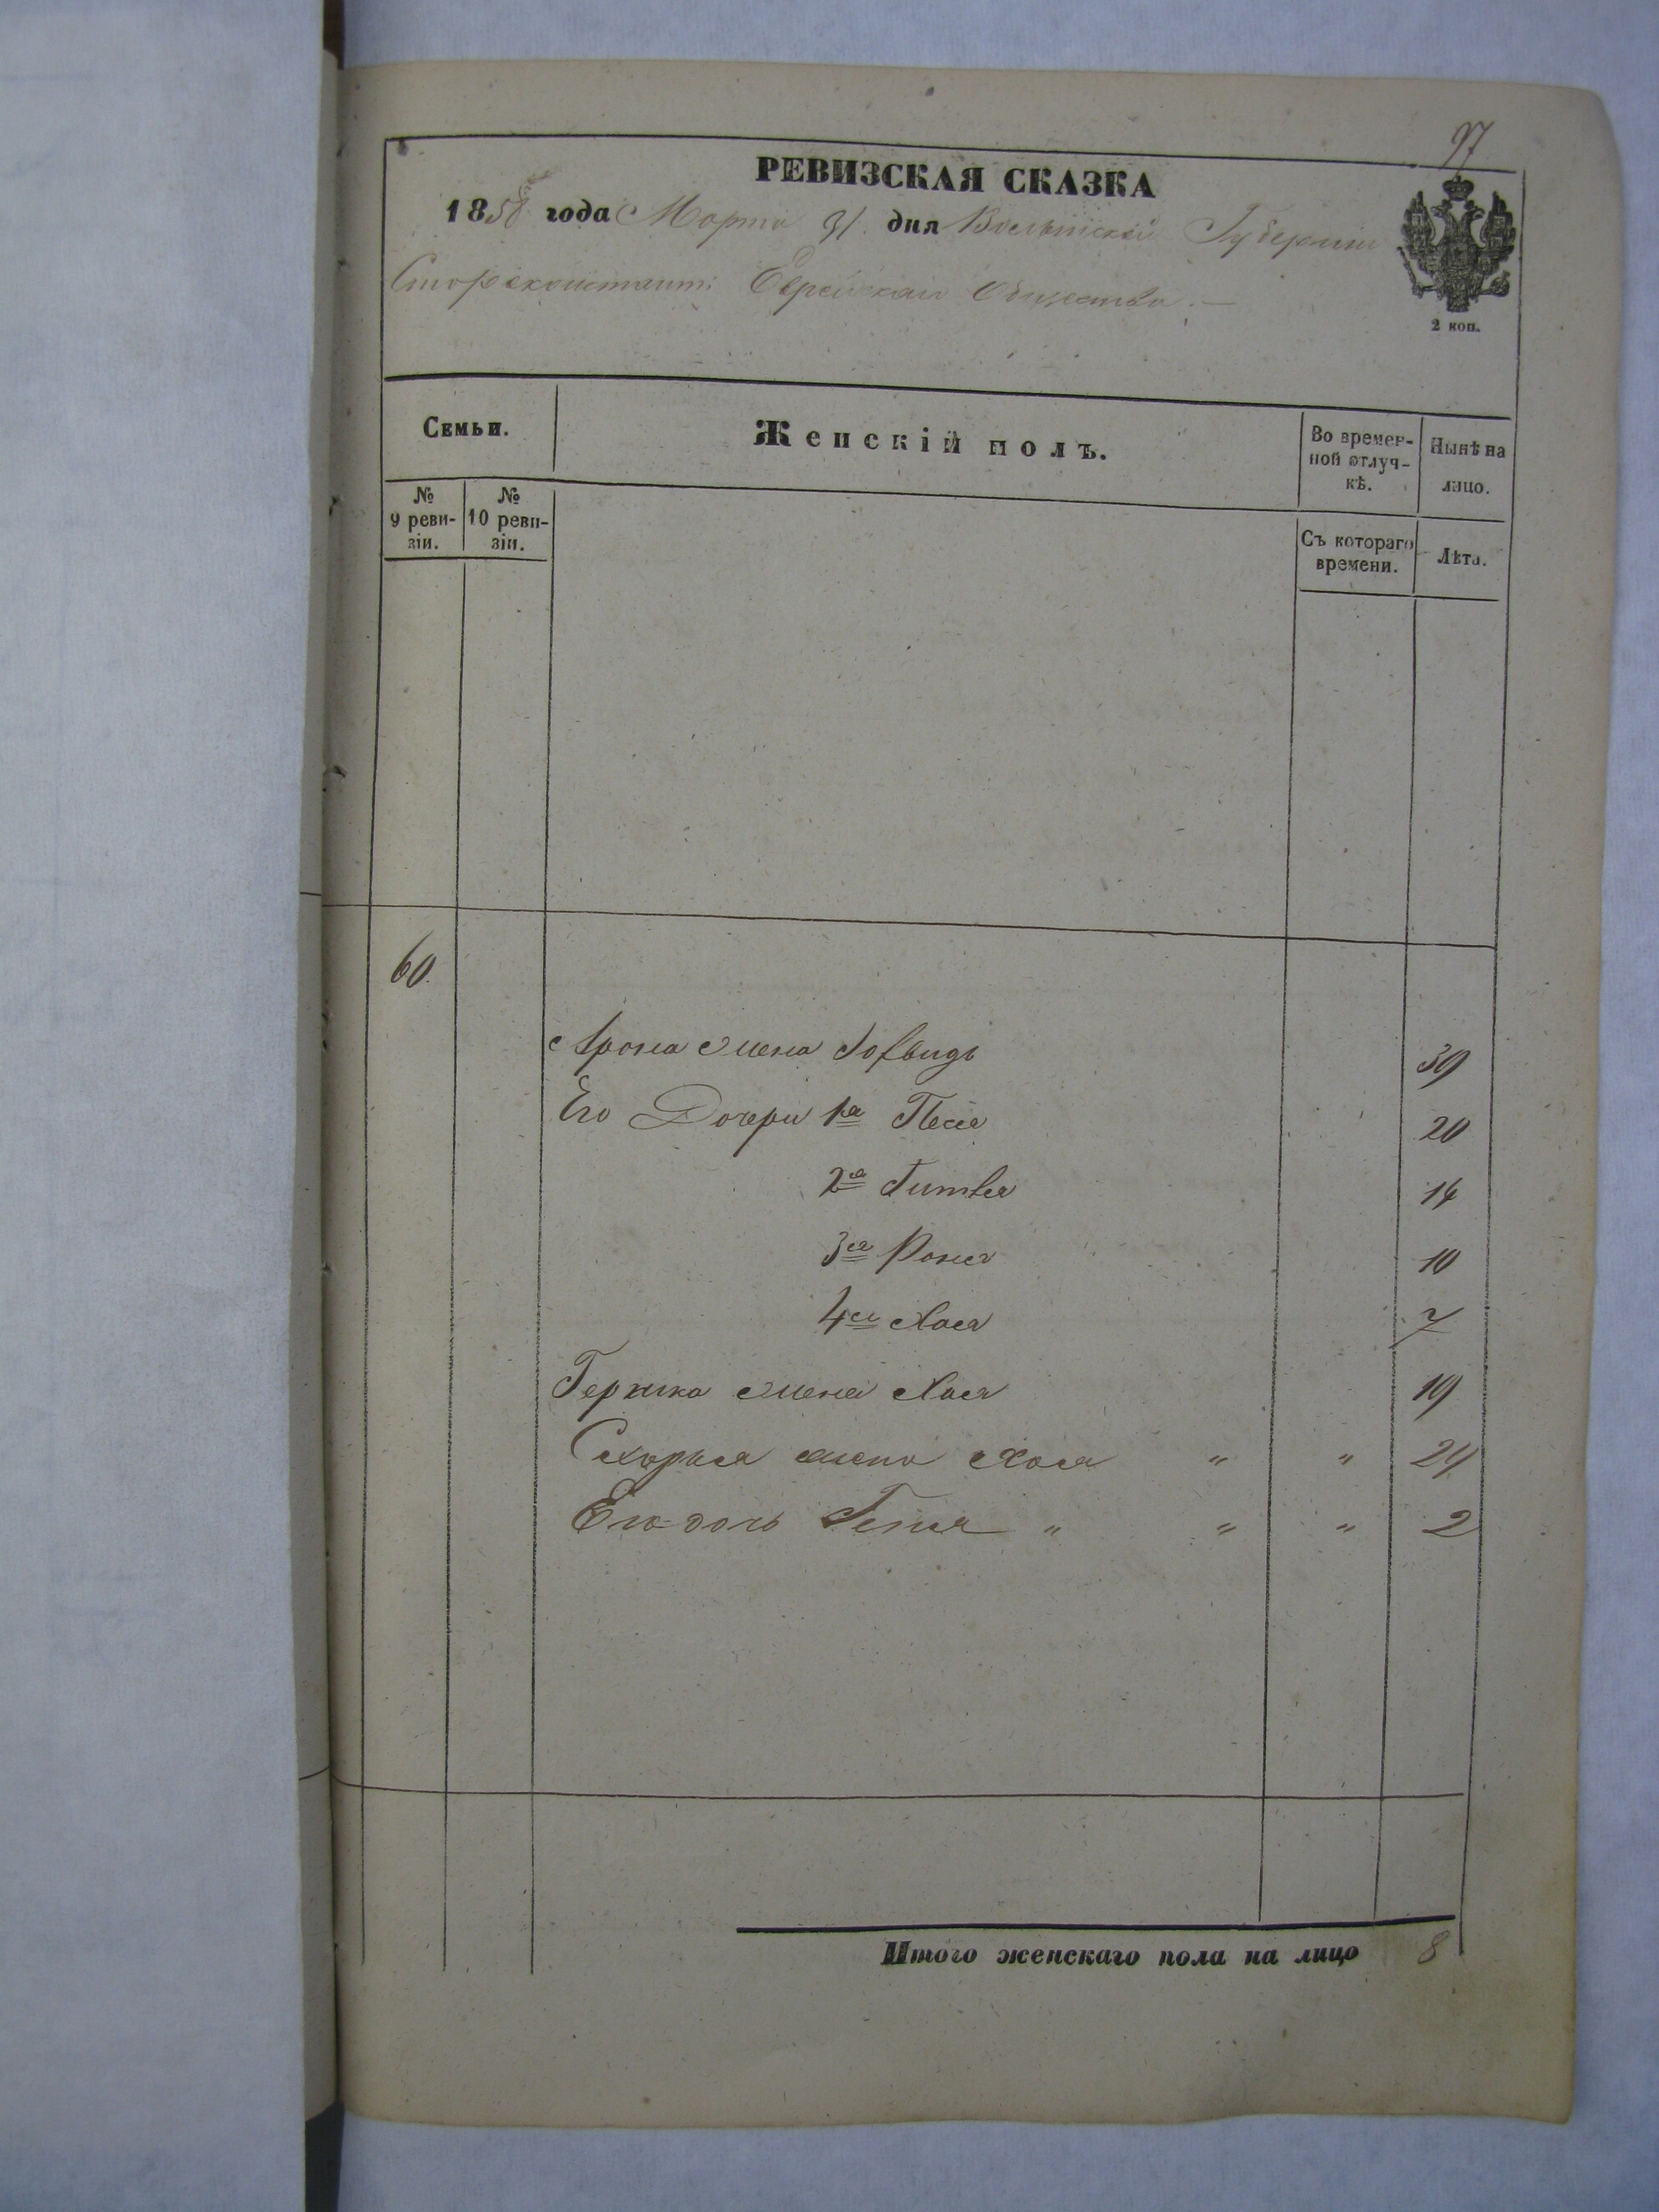 97
РЕВИЗСКАЯ СКАЗКА
1858 года Марта 31 дня Волынской Губернии
Староконстант: Еврейскаго Общества.—
2 коп.
Семьи.
Женскій полъ.
Во времен-
ной отлуч-
кѣ.
Нынѣ на
лицо.
№
9 реви-
зіи.
№
10 реви-
зіи.
Съ котораго
времени.
Лѣта.
60.
Арона жена 39
Его Дочери 1я Песя 20
2я Гитля 14
3я 10
4я Хася 7
Гершка жена Хася 19
жена Хася " " 24
Его дочь Геня " " " 2
Итого женскаго пола на лицо 8